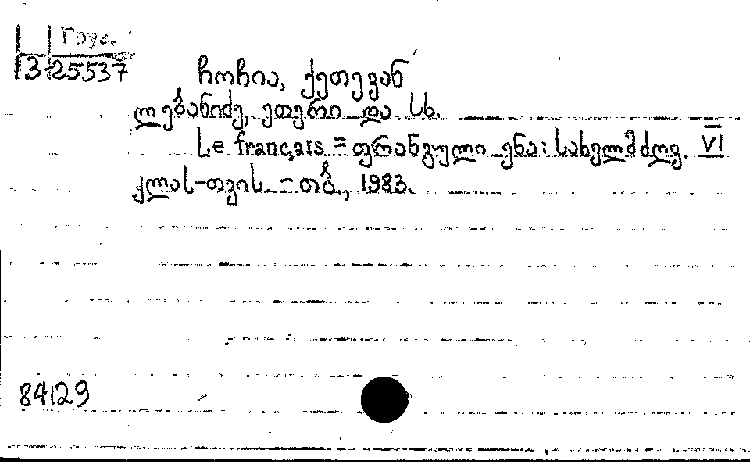 Груз.
3-25537
ჩოჩია, ქეთევან
ლებანიძე, ეთერი და სხ.
Le français = ფრანგული ენა: სახელმძღვ. VI
კლას-თვის. - თბ., 1983.
84129